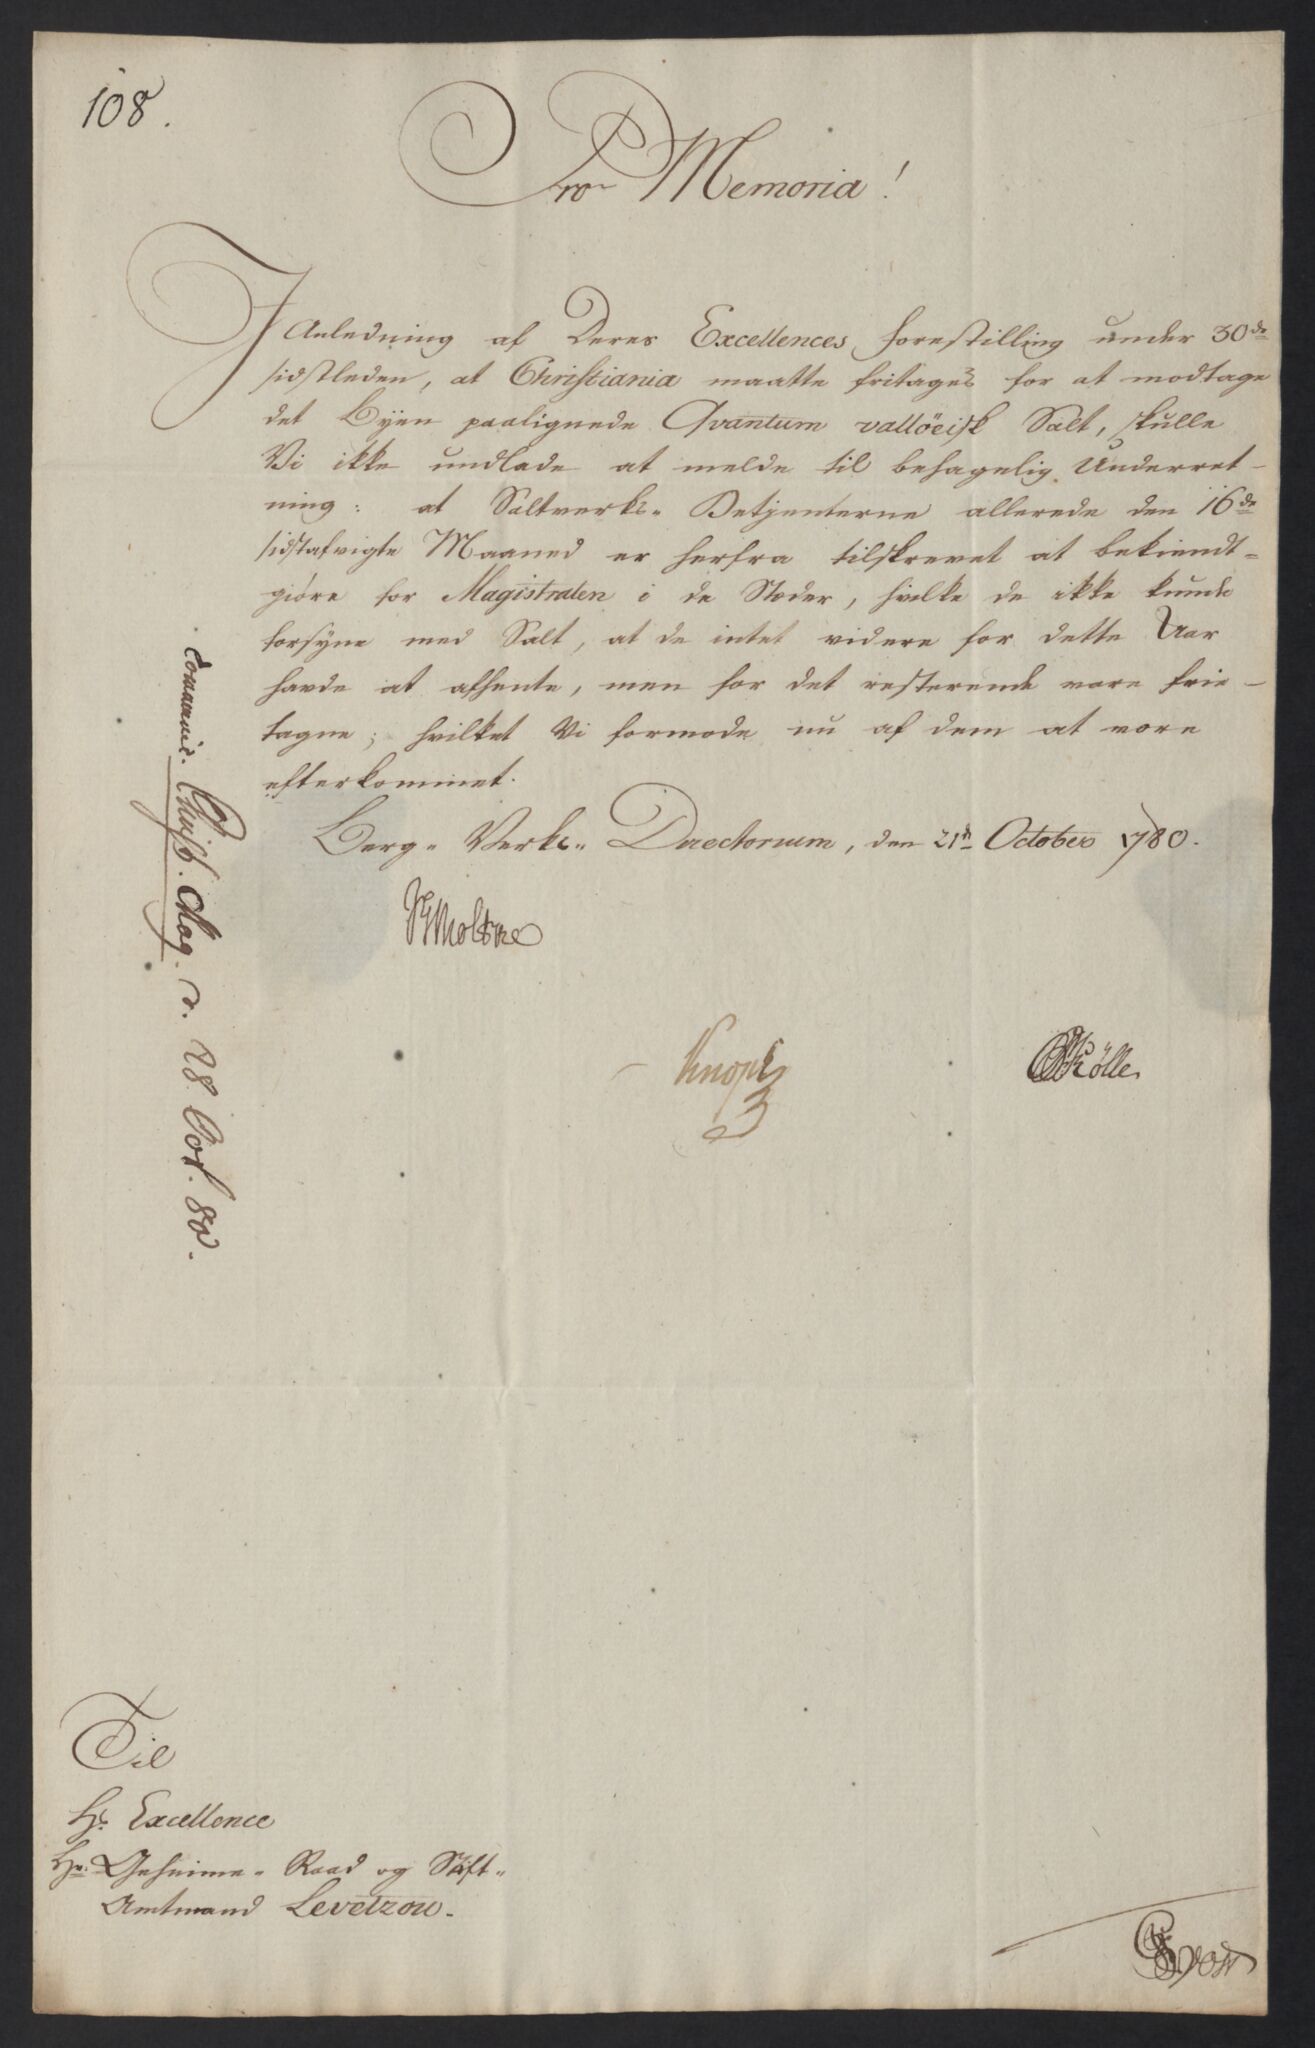 108.
Pro Memoria!
I Anledning af Deres Excellences Forestilling under 30de
sidstleden, at Christiania maatte fritages for at modtage
det Byen paalignede Qvantum vallöeisk Salt, skulle
Vi ikke undlade at melde til behagelig Underret-
ning: at Saltverks- Betjenterne allerede den 16de
sidstafvigte Maaned er herfra tilskrevet at bekiendt-
giöre for Magistraten i de Stæder, hvilke de ikke kunde
forsyne med Salt, at de intet videre for dette Aar
havde at afhente, men for det resterende vare frie-
tagne; hvilket Vi formode nu af dem at være
efterkommet.
Berg- Verks- Directorium, den 21de October 1780.
Moltke
Knoph
Kölle
communic. Christ. Mag. d. 28 Oct. 80.
Til
Hs. Excellence
Hr. Geheime- Raad og Stift-
Amtmand Levetzou.